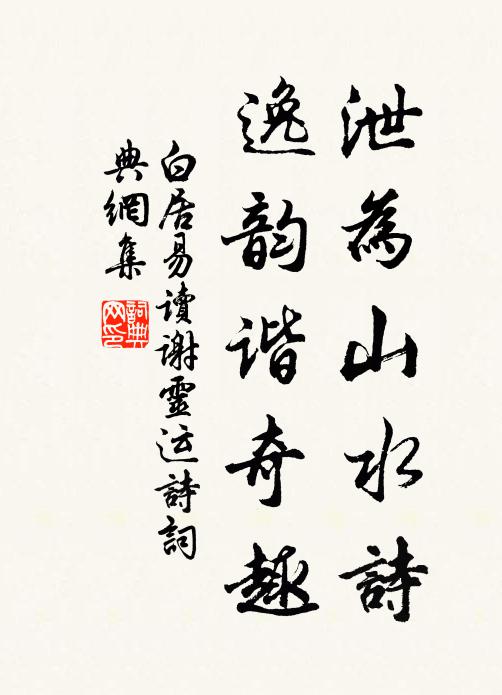 泄為山水詩
逸韵谐奇趣
白居易讀謝靈运詩詞
典網集
詞典
网印